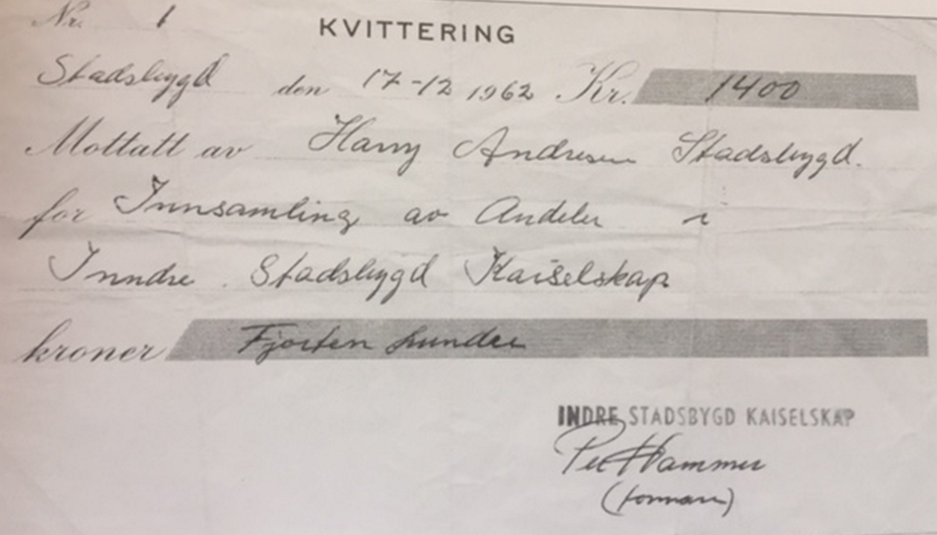 Nr. 1
KVITTERING
Stadsbygd den 17-12 1962 Kr. 1400
Mottatt av Harry Andresen Stadsbygd.
for Innsamling av Andeler i
Inndre Stadsbygd Kaiselskap
kroner Fjorten hundre
INDRE STADSBYGD KAISELSKAP
Per Hammer
(formann)